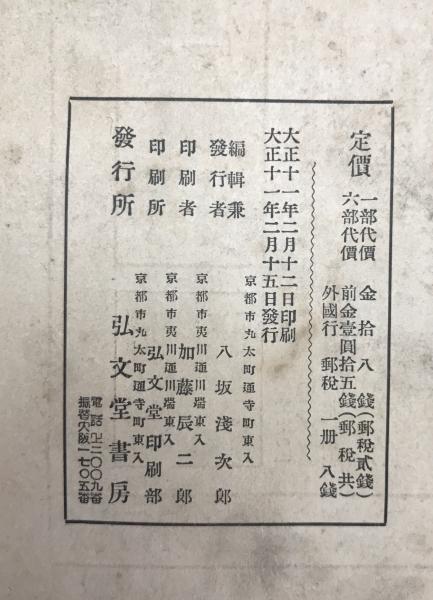 定價
一部代價 金拾八錢(郵稅貳錢)
六部代價 前金壹圓拾五錢(郵稅共)
外國行 郵稅 一册 八錢
大正十一年二月十二日印刷
大正十一年二月十五日發行
京都市丸太町通寺町東入
編輯兼
發行者 八坂淺次郎
京都市夷川通川端東入
印刷者 加藤辰二郎
京都市夷川通川端東入
印刷所 弘文堂印刷部
京都市丸太町通寺町東入
發行所 弘文堂書房
電話上二〇〇九番
振替大阪一七〇五番